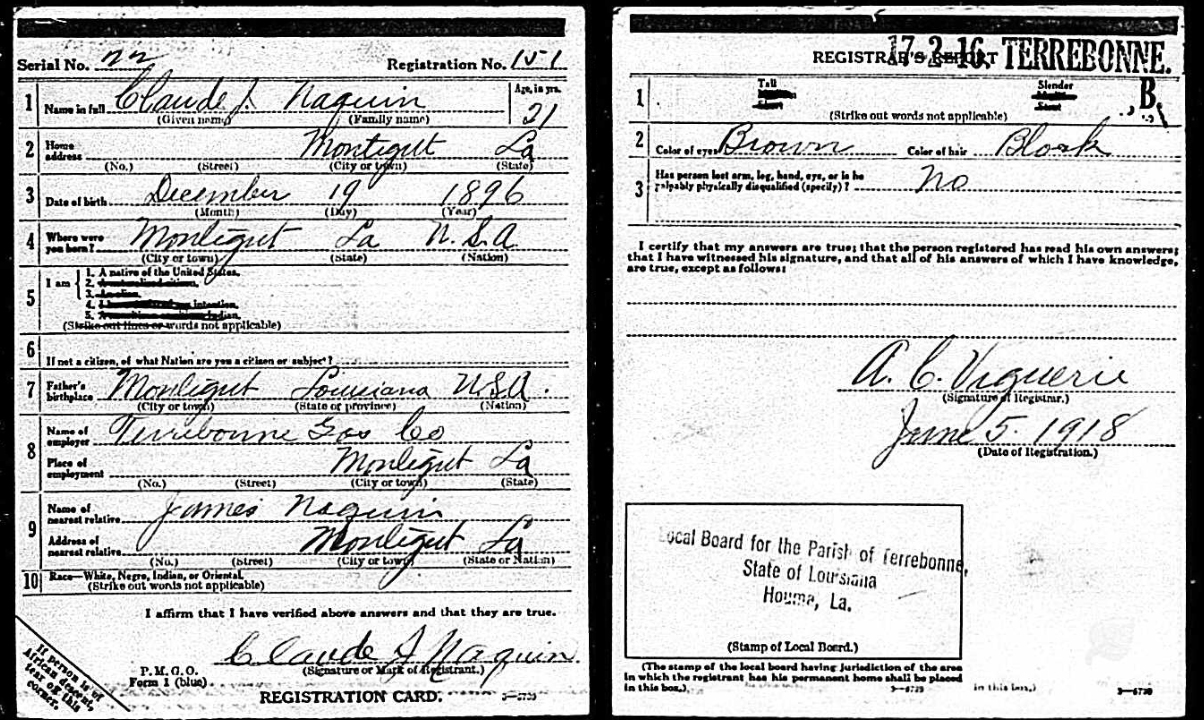 Serial No. 22 Registration No. 151
1 Name in full Claude J. Naquin Age, in yrs. 21
(Given name) (Family name)
2 Home address Montegut La
(No.) (Street) (City or town) (State)
3 Date of birth December 19 1896
(Month) (Day) (Year)
4 Where were you born? Montegut La U.S.A
(City or town) (State) (Nation)
5 I am
1. A native of the United States.
2. A naturalized citizen.
3. An alien.
4. intention.
5. Indian.
(Strike out lines or words not applicable)
6 If not a citizen, of what Nation are you a citizen or subject?
7 Father's birthplace Montegut Louisiana U.S.A.
(City or town) (State or province) (Nation)
8 Name of employer Terrebonne Gas Co
Place of employment Montegut La
(No.) (Street) (City or town) (State)
9 Name of nearest relative James Naquin
Address of nearest relative Montegut La
(No.) (Street) (City or town) (State or Nation)
10 Race—White, Negro, Indian, or Oriental.
(Strike out words not applicable)
I affirm that I have verified above answers and that they are true.
Claude J Naquin
(Signature or Mark of Registrant.)
P. M. G. O.
Form 1 (blue).
REGISTRATION CARD. 3—6739
If person is of
African descent,
tear off this
corner.
REGISTRAR'S REPORT 17-2-16. TERREBONNE.
, B,
1 Tall Slender
Short Stout
(Strike out words not applicable)
2 Color of eyes Brown Color of hair Black
3 Has person lost arm, leg, hand, eye, or is he
palpably physically disqualified (specify)? No
I certify that my answers are true; that the person registered has read his own answers;
that I have witnessed his signature, and that all of his answers of which I have knowledge,
are true, except as follows:
A. C. Viguerie
(Signature of Registrar.)
June 5. 1918
(Date of Registration.)
Local Board for the Parish of Terrebonne,
State of Louisiana
Houma, La.
(Stamp of Local Board.)
(The stamp of the local board having jurisdiction of the area
in which the registrant has his permanent home shall be placed
in this box.) 3—6739 in this box.) 3—6739